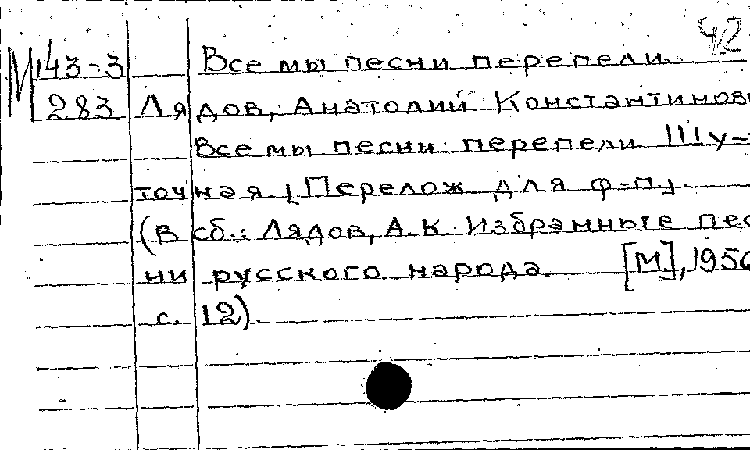 42
М 143-3 Все мы песни перепели.
283 Лядов, Анатолий Константинов
Все мы песни перепели. Шу-
точная. / Перелож. для ф-п /.
(В сб.: Лядов, А.К. Избранные пес
ни русского народа. [М], 1950
с. 12).